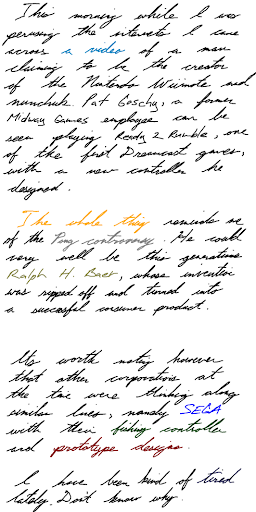 This morning while I was
perusing the internets I came
across a video of a man
claiming to be the creator
of the Nintendo Wiimote and
nunchuk. Pat Goschy, a former
Midway Games employee can be
seen playing Ready 2 Rumble, one
of the first Dreamcast games,
with a new controller he
designed.
The whole thing reminds me
of the Pong controversy. He could
very well be this generations
Ralph H. Baer, whose invention
was ripped off and turned into
a successful consumer product.
Its worth noting however
that other corporations at
the time were thinking along
similar lines, namely SEGA
with their fishing controller
and prototype designs.
I have been kind of tired
lately. Don't know why.